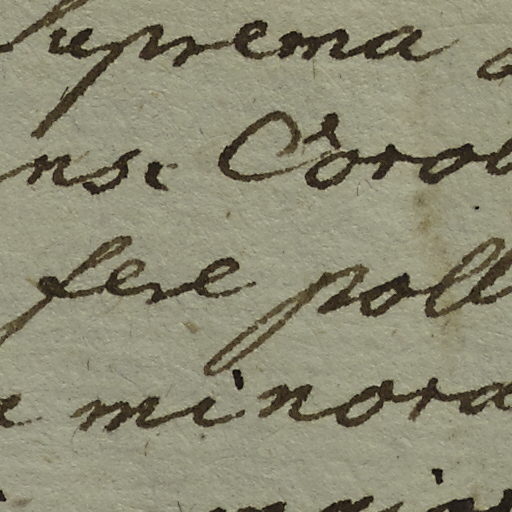 Suprema
ns. Corol
fere poll
minora